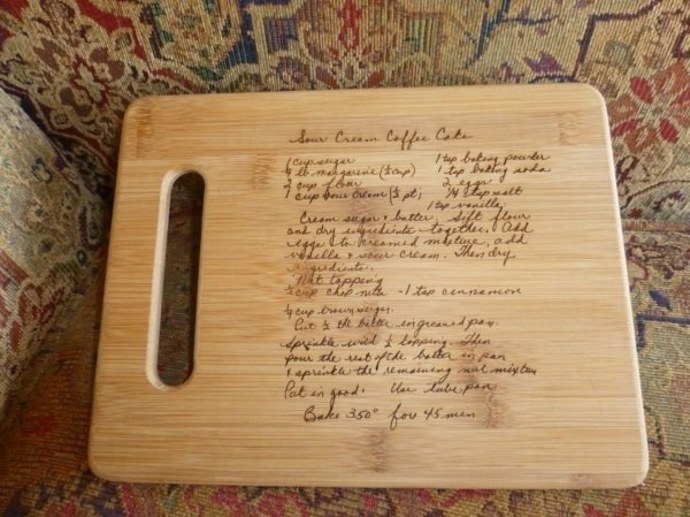 Sour Cream Coffee Cake
1 cup sugar 1 tsp baking powder
¼ lb margarine (½ cup) 1 tsp baking soda
2 cup flour 2 eggs
1 cup sour cream (½ pt) ¼ tsp salt
1 tsp vanilla
Cream sugar + butter, sift flour
and dry ingredients together. Add
eggs to creamed mixture, add
vanilla + sour cream. Then dry
ingredients.
Nut topping
cup chop nuts - 1 tsp cinnamon
¼ cup brown sugar.
Put ½ the batter in greased pan.
Sprinkle with ½ topping. Then
pour the rest of the batter in pan
+ sprinkle the remaining nut mixture
Pat in good. Use tube pan
Bake 350° for 45 min